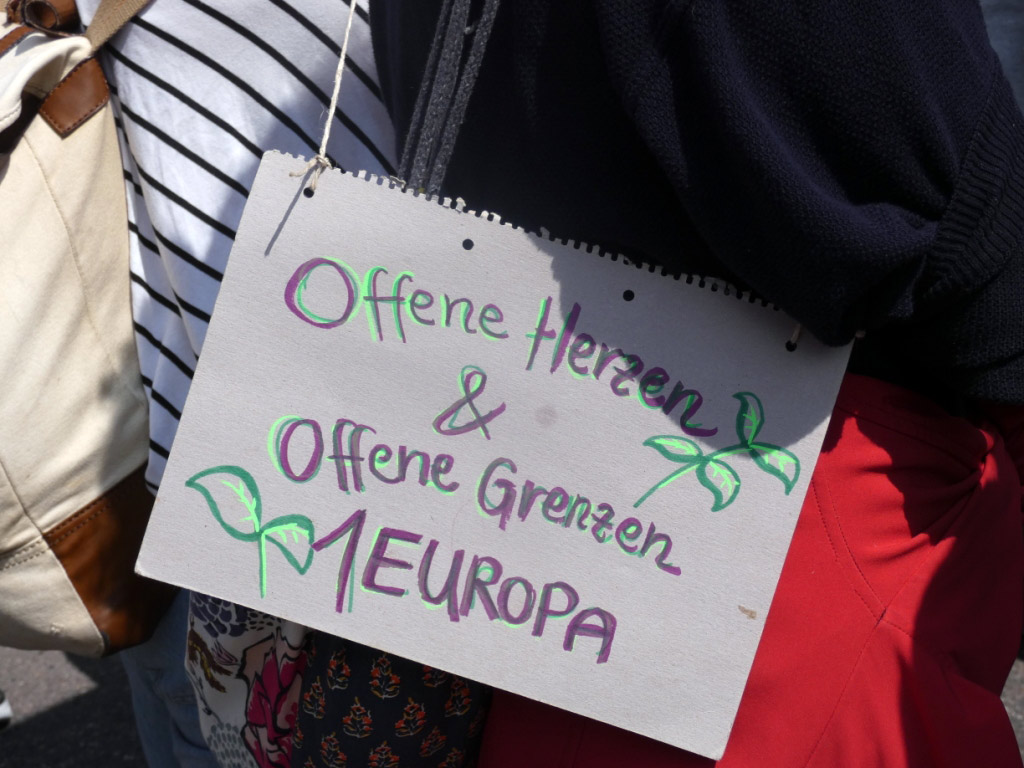 Offene Herzen
&
Offene Grenzen
1 EUROPA